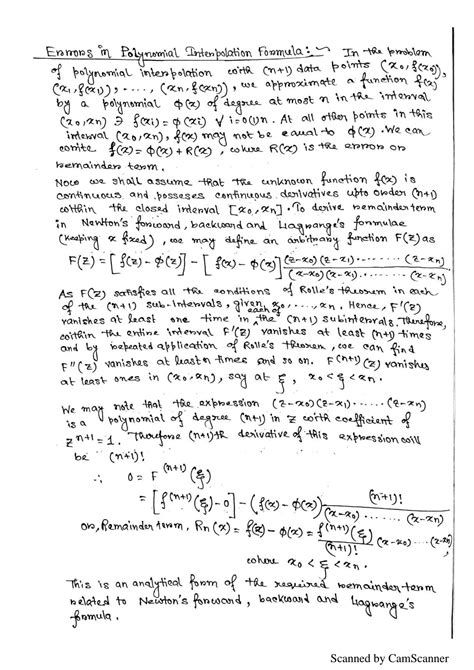 Errors in Polynomial Interpolation Formula:- In the problem
of polynomial interpolation with (n+1) data points (x₀, f(x₀)),
(x₁, f(x₁)), ...., (xₙ, f(xₙ)), we approximate a function f(x)
by a polynomial φ(x) of degree at most n in the interval
(x₀, xₙ) ∋ f(xᵢ) = φ(xᵢ) ∀ i=0(1)n. At all other points in this
interval (x₀, xₙ), f(x) may not be equal to φ(x). We can
write f(x) = φ(x) + R(x), where R(x) is the error or
remainder term.
Now we shall assume that the unknown function f(x) is
continuous and posseses continuous derivatives upto order (n+1)
within the closed interval [x₀, xₙ]. To derive remainder term
in Newton's forward, backward and Lagrange's formulae
(keeping x fixed), we may define an arbitrary function F(z) as
F(z) = [f(z) - φ(z)] - [f(x) - φ(x)] (z-x₀)(z-x₁)........(z-xₙ) / (x-x₀)(x-x₁)........(x-xₙ)
As F(z) satisfies all the conditions of Rolle's theorem in each
of the (n+1) sub-intervals, given x₀, ...., xₙ. Hence, F'(z)
vanishes at least one time in each of the (n+1) subintervals. Therefore,
within the entire interval F'(z) vanishes at least (n+1) times
and by repeated application of Rolle's theorem, we can find
F''(z) vanishes at least n times and so on. F⁽ⁿ⁺¹⁾(z) vanishes
at least ones in (x₀, xₙ), say at ξ, x₀ < ξ < xₙ.
We may note that the expression (z-x₀)(z-x₁)......(z-xₙ)
is a polynomial of degree (n+1) in z with coefficient of
zⁿ⁺¹ = 1. Therefore (n+1)th derivative of this expression will
be (n+1)!
∴ 0 = F⁽ⁿ⁺¹⁾(ξ)
= [f⁽ⁿ⁺¹⁾(ξ) - 0] - (f(x) - φ(x)) (n+1)! / (x-x₀)......(x-xₙ)
or, Remainder term, Rₙ(x) = f(x) - φ(x) = f⁽ⁿ⁺¹⁾(ξ) / (n+1)! (x-x₀)......(x-xₙ),
where x₀ < ξ < xₙ.
This is an analytical form of the required remainder-term
related to Newton's forward, backward and Lagrange's
formula.
Scanned by CamScanner